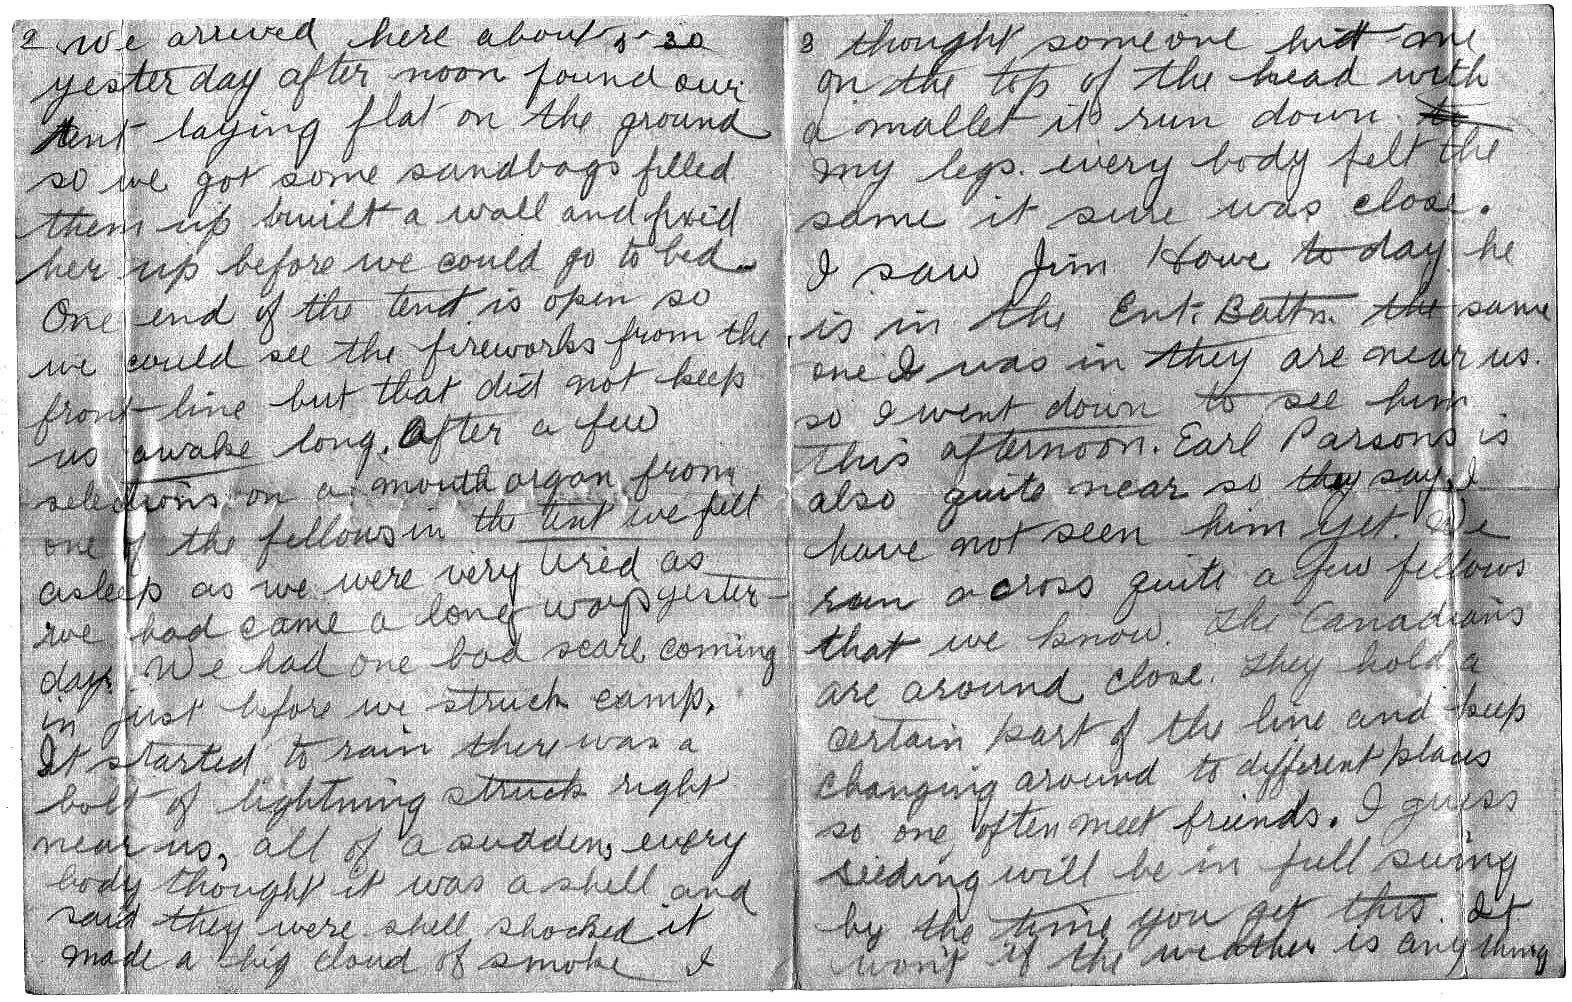 2 We arrived here about 5-30
yesterday after noon found our
tent laying flat on the ground
so we got some sandbags filled
them up built a wall and fixed
her up before we could go to bed.
One end of the tent is open so
we could see the fireworks from the
front line but that did not keep
us awake long. After a few
selections on a mouth organ from
one of the fellows in the tent we fell
asleep as we were very tired as
we had came a long ways yester-
day. We had one bad scare coming
in just before we struck camp.
It started to rain there was a
bolt of lightning struck right
near us, all of a sudden, every
body thought it was a shell and
said they were shell shocked it
made a big cloud of smoke I
3 thought someone hit me
on the top of the head with
a mallet it run down to
my legs. every body felt the
same it sure was close.
I saw Jim Howe to day he
is in the Ent. Battn. the same
one I was in they are near us.
so I went down to see him
this afternoon. Earl Parsons is
also quite near so they say, I
have not seen him yet. We
run across quite a few fellows
that we know. The Canadians
are around close. They hold a
certain part of the line and keep
changing around to different places
so one often meet friends. I guess
seeding will be in full swing
by the time you get this. It
won't if the weather is anything